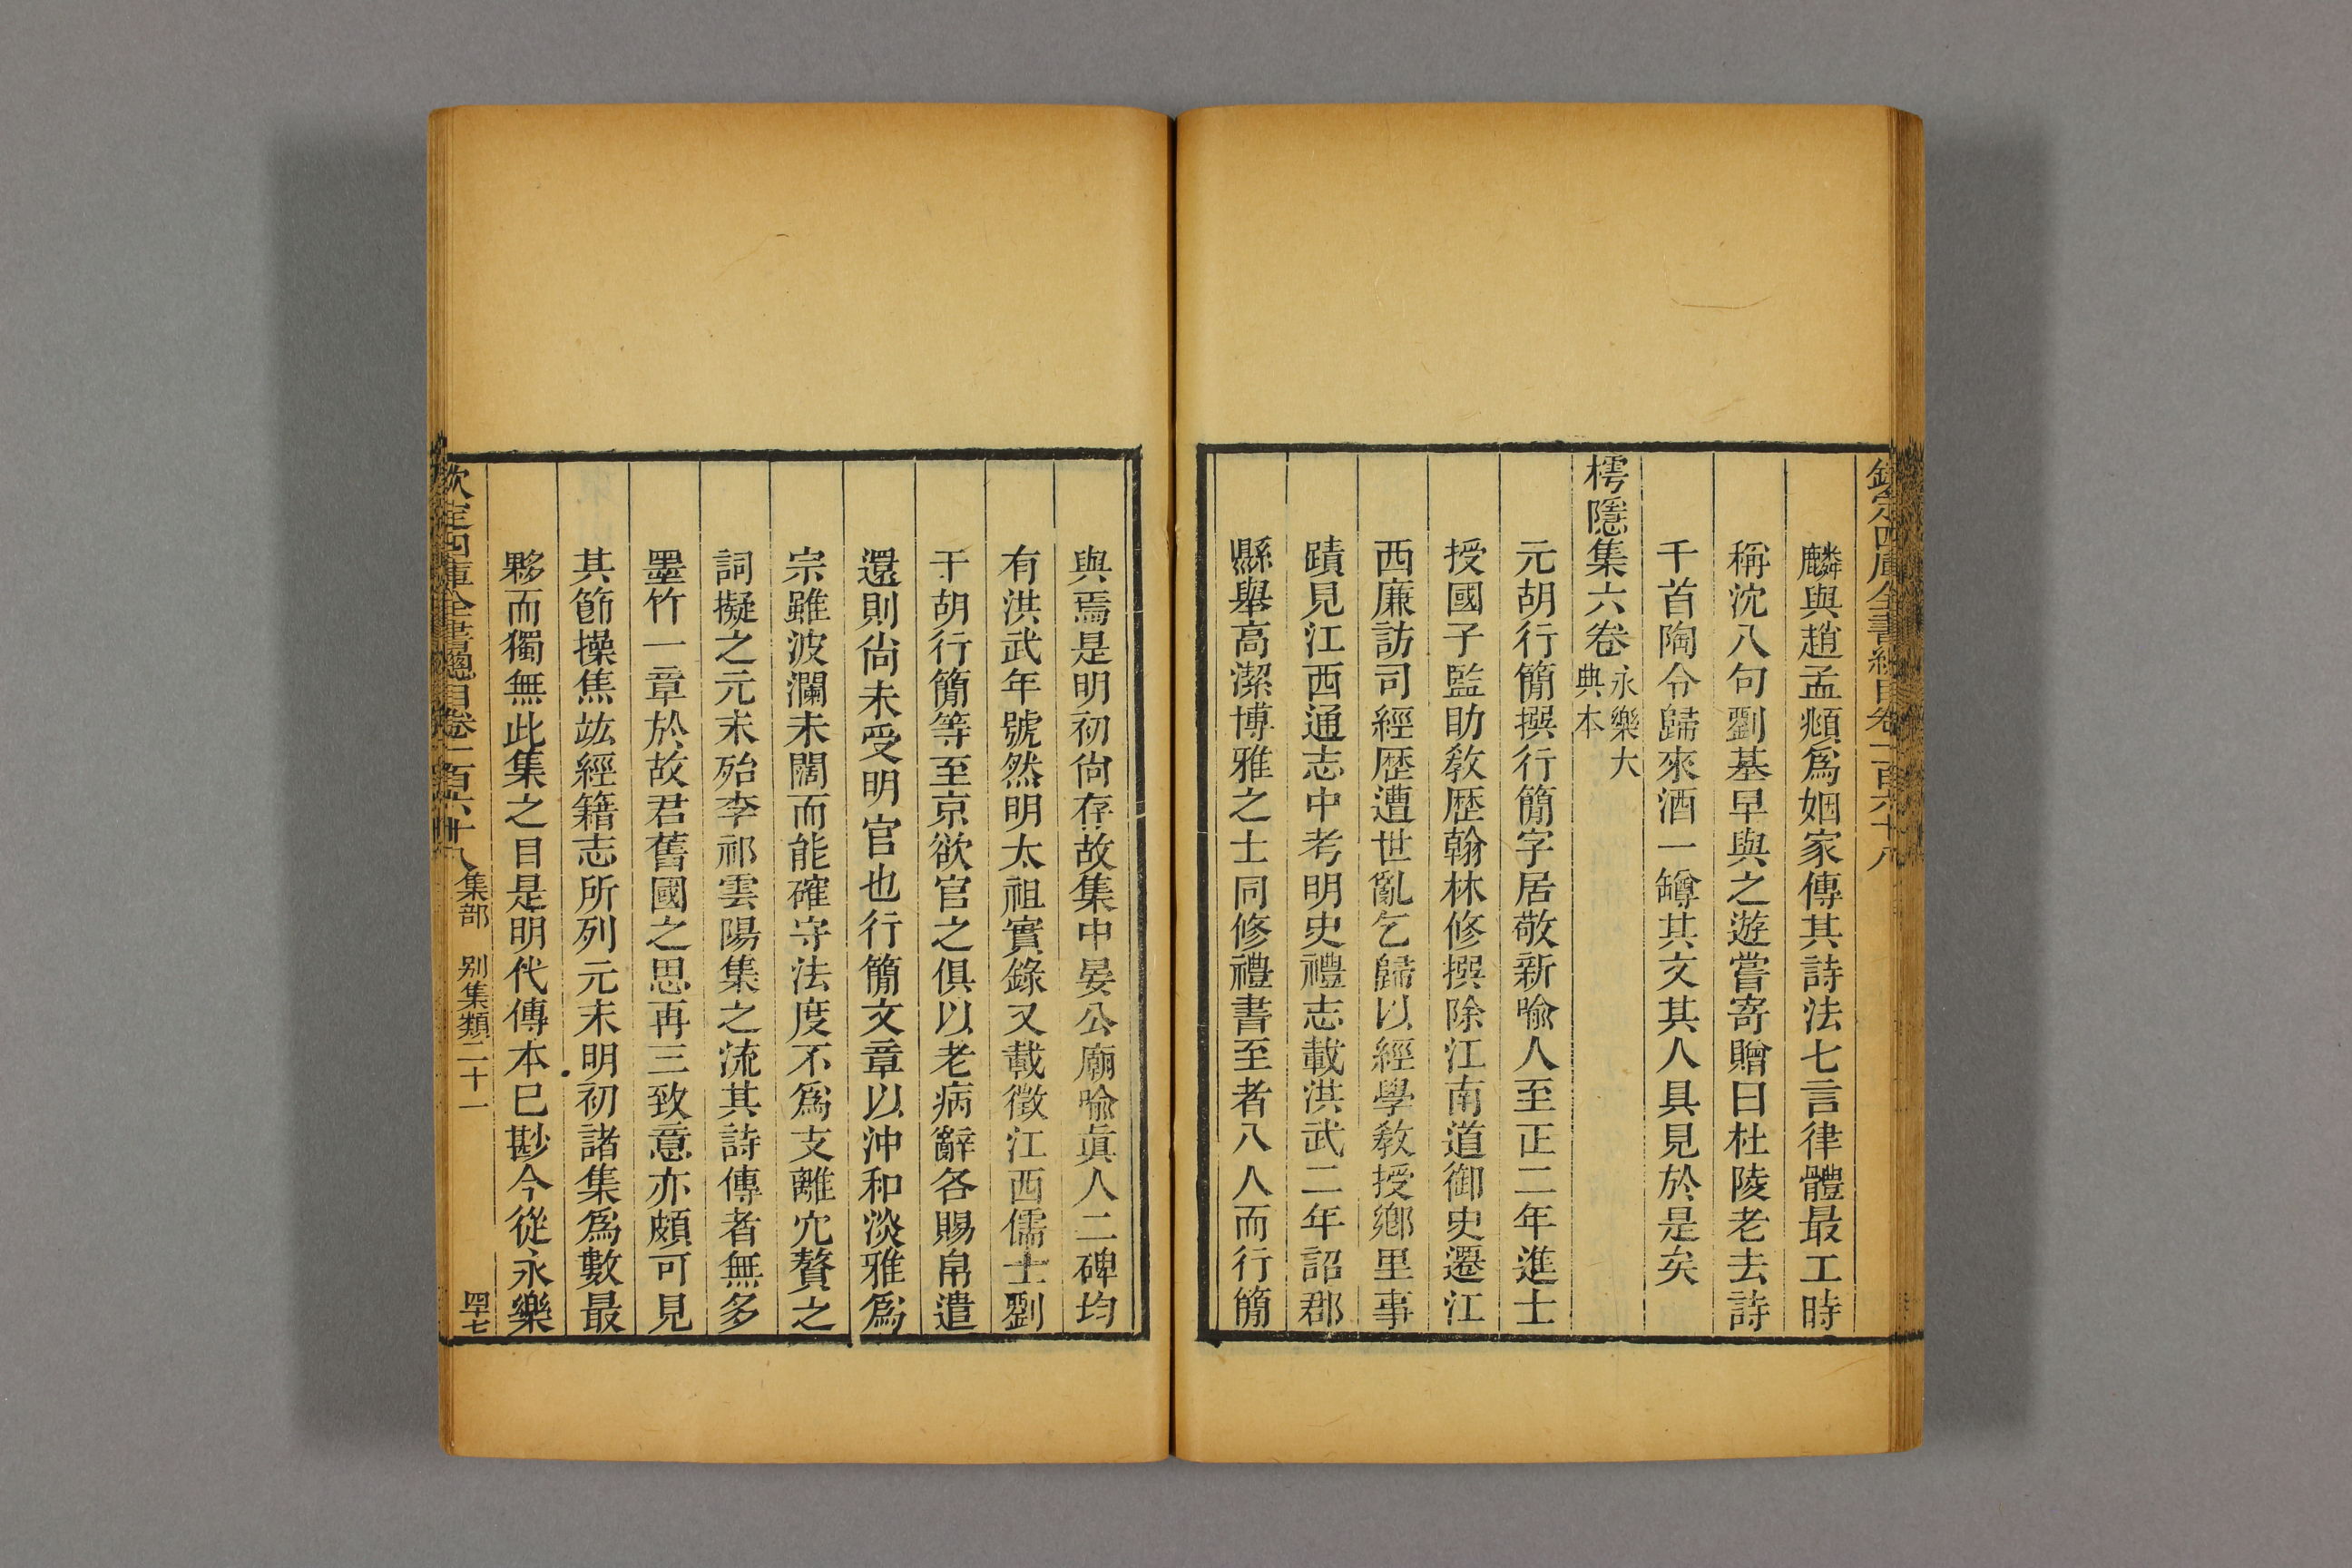 欽定四庫全書總目卷一百六十八
麟與趙孟頫爲姻家傳其詩法七言律體最工時
稱沈八句劉基早與之遊嘗寄贈曰杜陵老去詩
千首陶令歸來酒一罇其文其人具見於是矣
樗隱集六卷永樂大典本
元胡行簡撰行簡字居敬新喻人至正二年進士
授國子監助教歴翰林修撰除江南道御史遷江
西廉訪司經歴遭世亂乞歸以經學教授鄉里事
蹟見江西通志中考明史禮志載洪武二年詔郡
縣舉高潔博雅之士同修禮書至者八人而行簡
與焉是明初尙存故集中晏公廟喻眞人二碑均
有洪武年號然明太祖實錄又載徵江西儒士劉
于胡行簡等至京欲官之俱以老病辭各賜帛遣
還則尙未受明官也行簡文章以沖和淡雅爲
宗雖波瀾未闊而能確守法度不爲支離宂贅之
詞擬之元末殆李祁雲陽集之流其詩傳者無多
墨竹一章於故君舊國之思再三致意亦頗可見
其節操焦竑經籍志所列元末明初諸集爲數最
夥而獨無此集之目是明代傳本已尠今從永樂
欽定四庫全書總目卷一百六十八 集部 別集類二十一 四十七